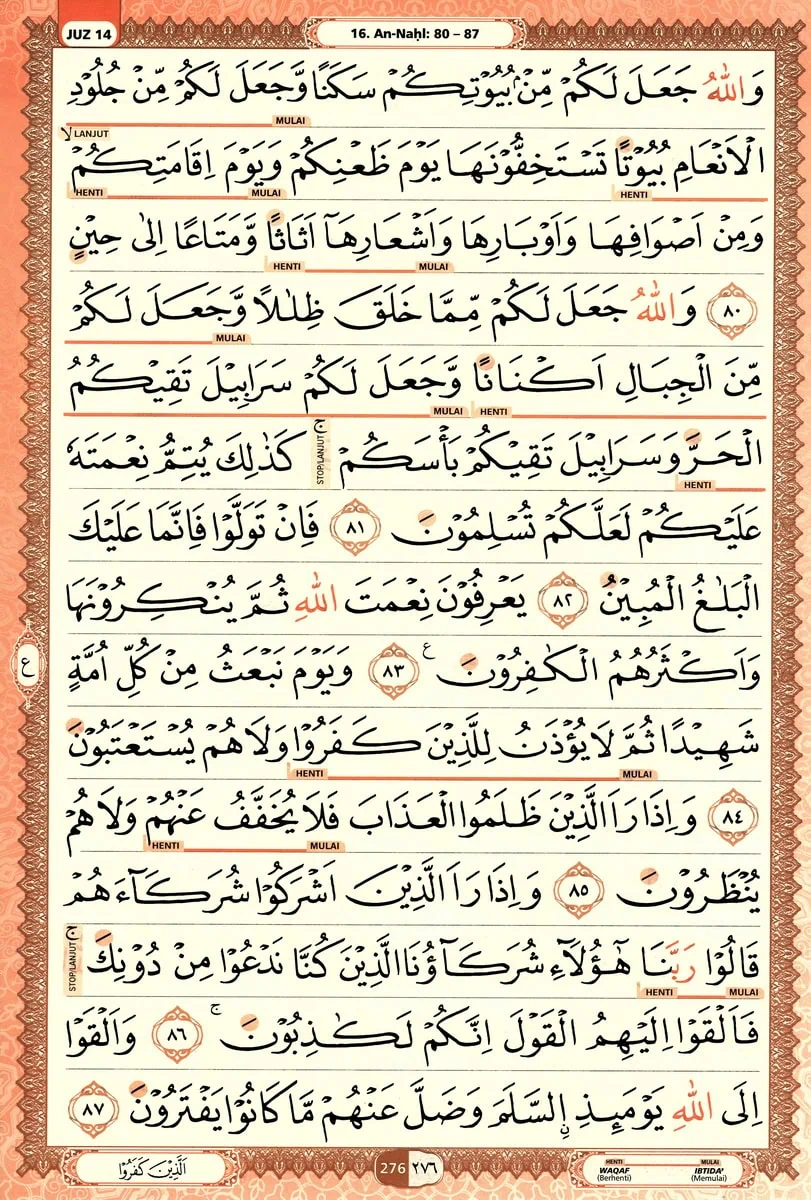 JUZ 14
16. An-Naḥl: 80 – 87
وَاللّٰهُ جَعَلَ لَكُمْ مِّنْۢ بُيُوْتِكُمْ سَكَنًا وَّجَعَلَ لَكُمْ مِّنْ جُلُوْدِ
MULAI
لا LANJUT
الْاَنْعَامِ بُيُوْتًا تَسْتَخِفُّوْنَهَا يَوْمَ ظَعْنِكُمْ وَيَوْمَ اِقَامَتِكُمْ
HENTI MULAI HENTI
وَمِنْ اَصْوَافِهَا وَاَوْبَارِهَا وَاَشْعَارِهَآ اَثَاثًا وَّمَتَاعًا اِلٰى حِيْنٍ
MULAI HENTI
٨٠ وَاللّٰهُ جَعَلَ لَكُمْ مِّمَّا خَلَقَ ظِلٰلًا وَّجَعَلَ لَكُمْ
MULAI
مِّنَ الْجِبَالِ اَكْنَانًا وَّجَعَلَ لَكُمْ سَرَابِيْلَ تَقِيْكُمُ
HENTI MULAI
الْحَرَّ وَسَرَابِيْلَ تَقِيْكُمْ بَأْسَكُمْ ۚ كَذٰلِكَ يُتِمُّ نِعْمَتَهٗ
HENTI STOP/LANJUT
عَلَيْكُمْ لَعَلَّكُمْ تُسْلِمُوْنَ ٨١ فَاِنْ تَوَلَّوْا فَاِنَّمَا عَلَيْكَ
الْبَلٰغُ الْمُبِيْنُ ٨٢ يَعْرِفُوْنَ نِعْمَتَ اللّٰهِ ثُمَّ يُنْكِرُوْنَهَا
وَاَكْثَرُهُمُ الْكٰفِرُوْنَ ع ٨٣ وَيَوْمَ نَبْعَثُ مِنْ كُلِّ اُمَّةٍ
ع
شَهِيْدًا ثُمَّ لَا يُؤْذَنُ لِلَّذِيْنَ كَفَرُوْا وَلَا هُمْ يُسْتَعْتَبُوْنَ
MULAI HENTI
٨٤ وَاِذَا رَاَ الَّذِيْنَ ظَلَمُوا الْعَذَابَ فَلَا يُخَفَّفُ عَنْهُمْ وَلَا هُمْ
MULAI HENTI
يُنْظَرُوْنَ ٨٥ وَاِذَا رَاَ الَّذِيْنَ اَشْرَكُوْا شُرَكَاۤءَهُمْ
قَالُوْا رَبَّنَا هٰٓؤُلَاۤءِ شُرَكَاۤؤُنَا الَّذِيْنَ كُنَّا نَدْعُوْا مِنْ دُوْنِكَ ۚ
MULAI HENTI STOP/LANJUT
فَاَلْقَوْا اِلَيْهِمُ الْقَوْلَ اِنَّكُمْ لَكٰذِبُوْنَ ۚ ٨٦ وَاَلْقَوْا
اِلَى اللّٰهِ يَوْمَىِٕذِ ِۨالسَّلَمَ وَضَلَّ عَنْهُمْ مَّا كَانُوْا يَفْتَرُوْنَ ٨٧
اَلَّذِيْنَ كَفَرُوْا
276 ٢٧٦
HENTI MULAI
WAQAF IBTIDA'
(Berhenti) (Memulai)